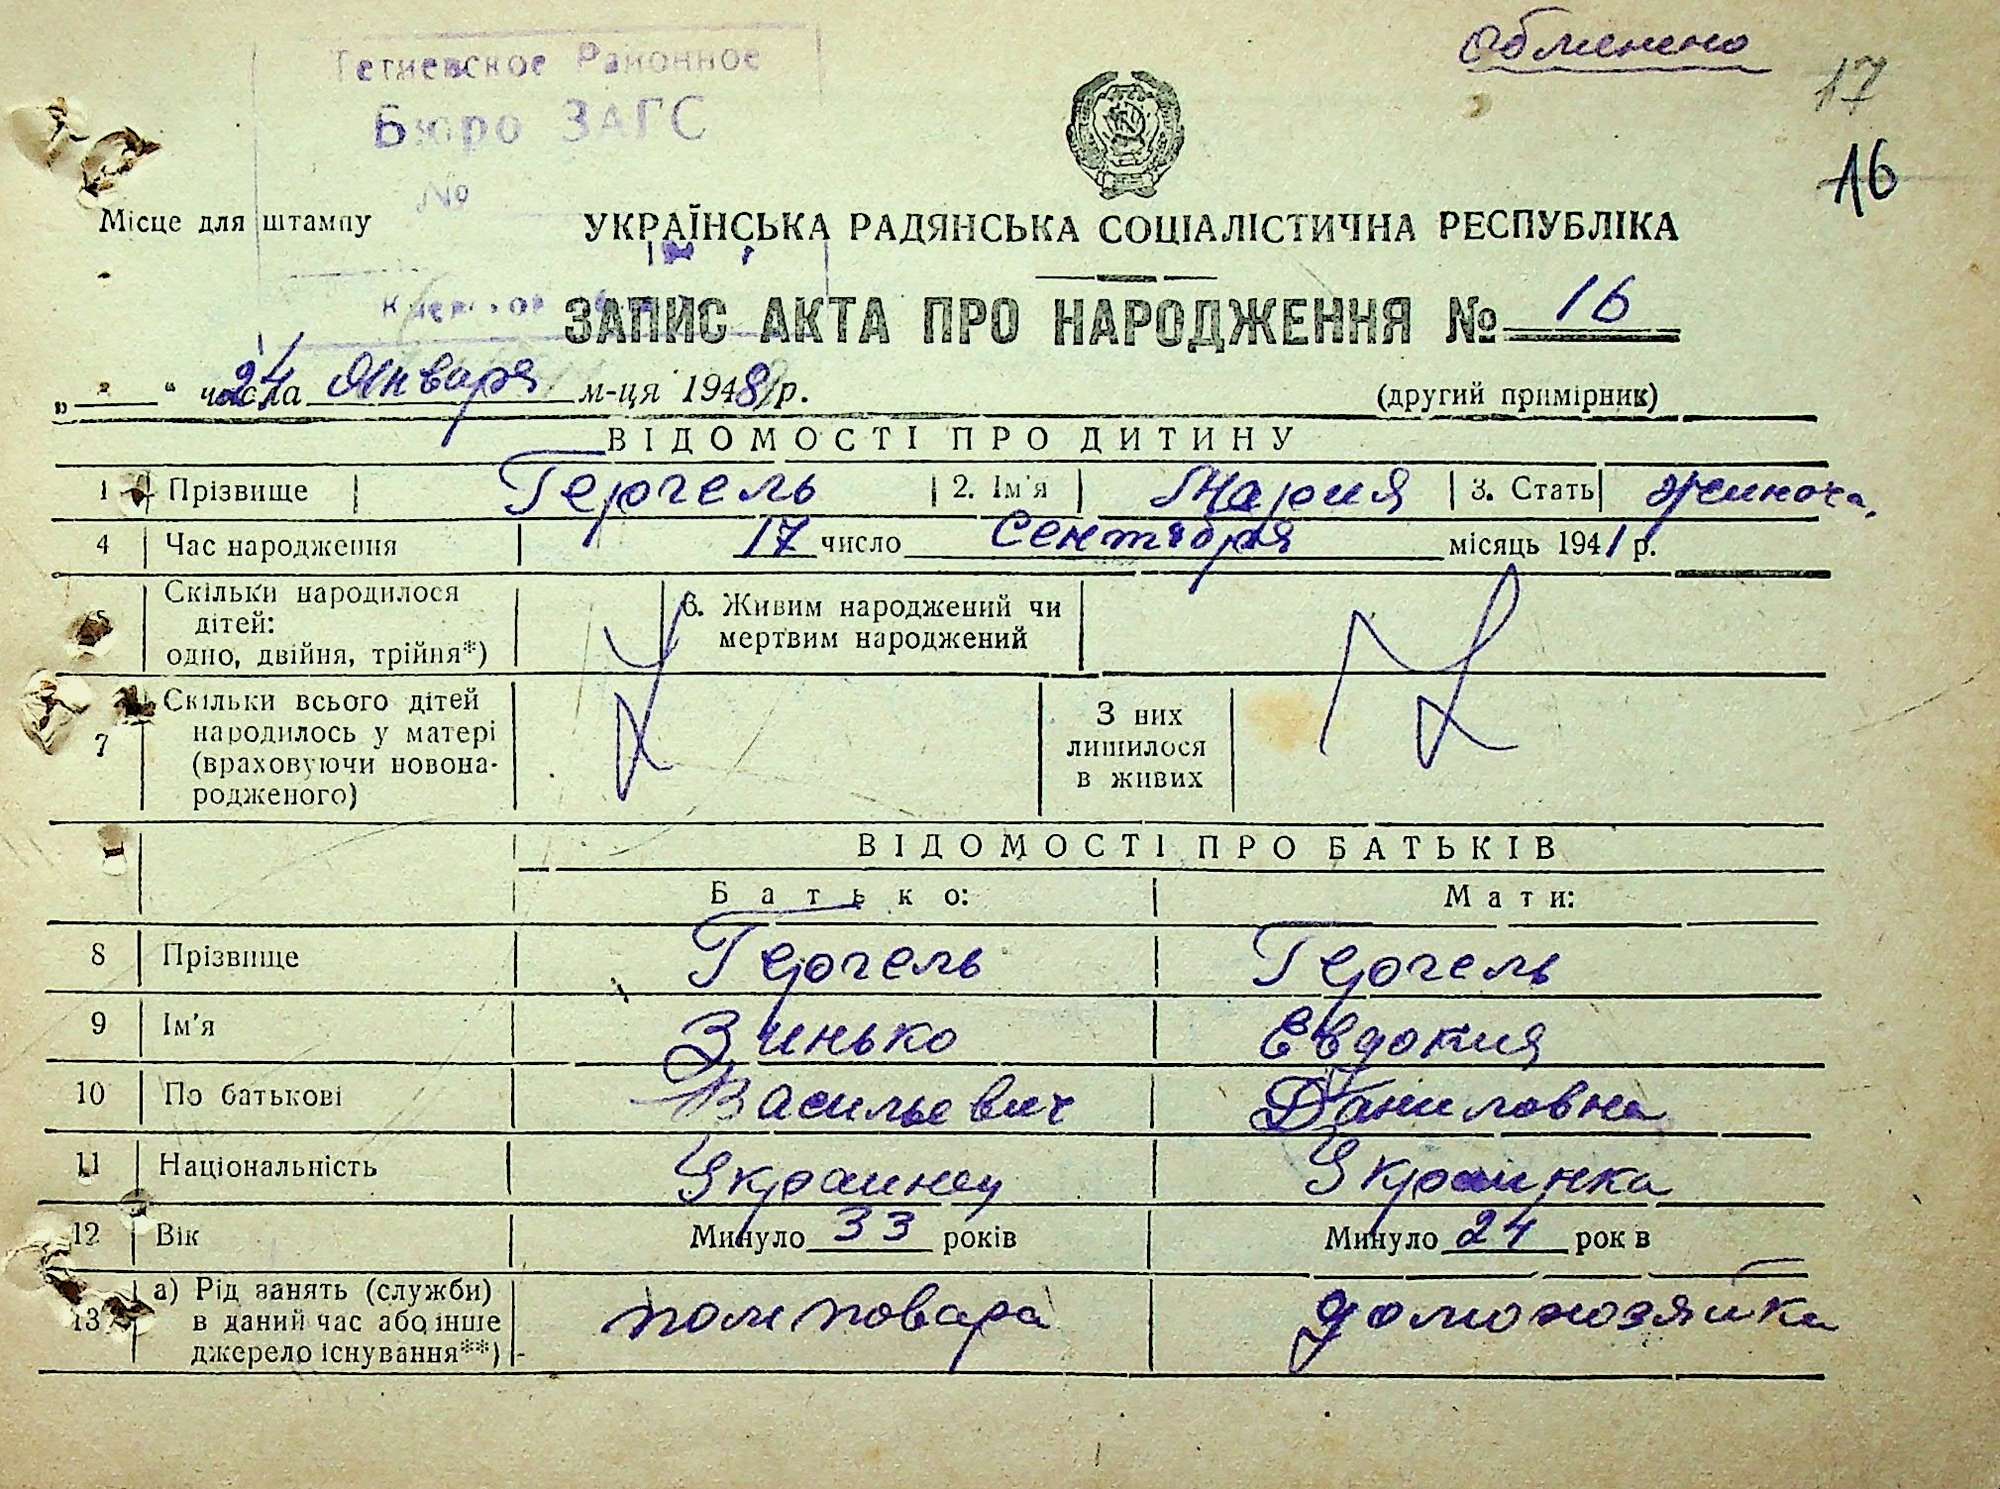 Обменено
17
16
Тетиевское Районное
Бюро ЗАГС
№
Місце для штампу
УКРАЇНСЬКА РАДЯНСЬКА СОЦІАЛІСТИЧНА РЕСПУБЛІКА
ЗАПИС АКТА ПРО НАРОДЖЕННЯ № 16
„ “ 24 числа Января м-ця 1948 р. (другий примірник)
ВІДОМОСТІ ПРО ДИТИНУ
1 Прізвище Гергель 2. Ім'я Мария 3. Стать жиноча
4 Час народження 17 число Сентября місяць 1941 р.
5 Скільки народилося
дітей:
одно, двійня, трійня*)
6. Живим народжений чи
мертвим народжений
7 Скільки всього дітей
народилось у матері
(враховуючи новона-
родженого)
З них
лишилося
в живих
ВІДОМОСТІ ПРО БАТЬКІВ
Батько: Мати:
8 Прізвище Гергель Гергель
9 Ім'я Зинько Евдокия
10 По батькові Васильевич Даниловна
11 Національність Украинец Украинка
12 Вік Минуло 33 років Минуло 24 рок в
13 а) Рід занять (служби)
в даний час або інше
джерело існування**)
пом повара домохозяйка